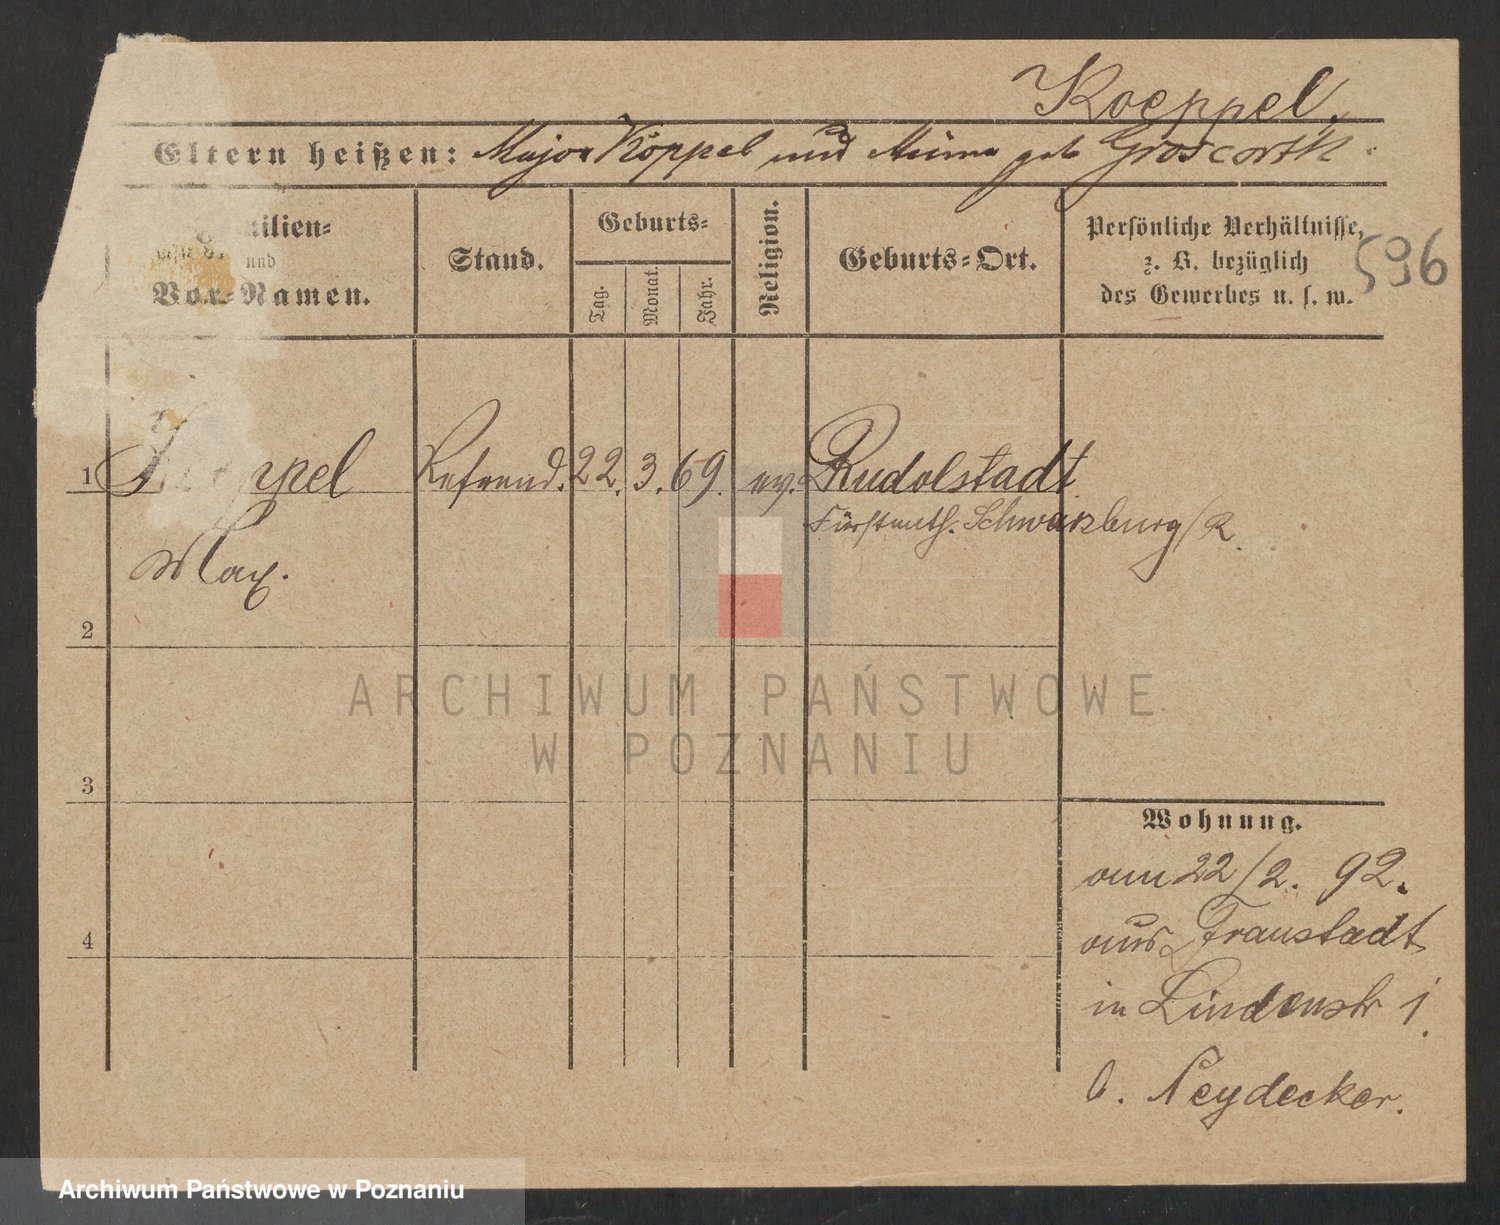 Koeppel.
Eltern heißen: Major Köppel und Minna geb Groscorth.
Familien-
und
Vor-Namen.
Stand.
Geburts-
Tag.
Monat.
Jahr.
Religion.
Geburts-Ort.
Persönliche Verhältnisse,
z. B. bezüglich
des Gewerbes u. s. w.
596
1 Koeppel Referend. 22. 3. 69. ev. Rudolstadt
Fürstenth. Schwarzburg/R.
Max.
2
3
4
Wohnung.
vom 22/2. 92.
aus Fraustadt
in Lindenstr 1.
b. Neydecker.
ARCHIWUM PAŃSTWOWE
W POZNANIU
Archiwum Państwowe w Poznaniu